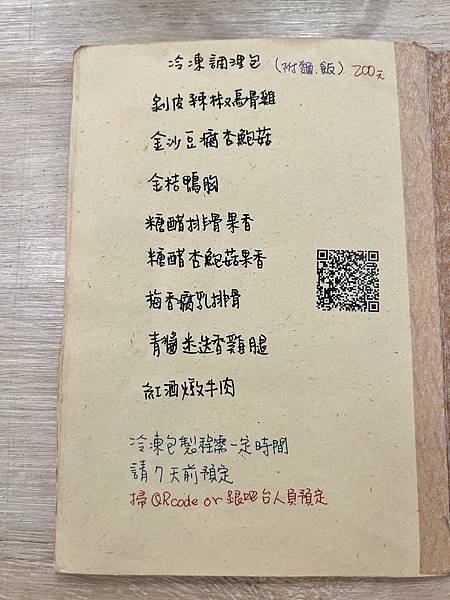 冷凍調理包 (附麵.飯) 200元
剝皮辣椒烏骨雞
金沙豆腐杏鮑菇
金桔鴨胸
糖醋排骨果香
糖醋杏鮑菇果香
梅香腐乳排骨
青醬迷迭香雞腿
紅酒燉牛肉
冷凍包製程需一定時間
請7天前預定
掃QRcode or 跟吧台人員預定